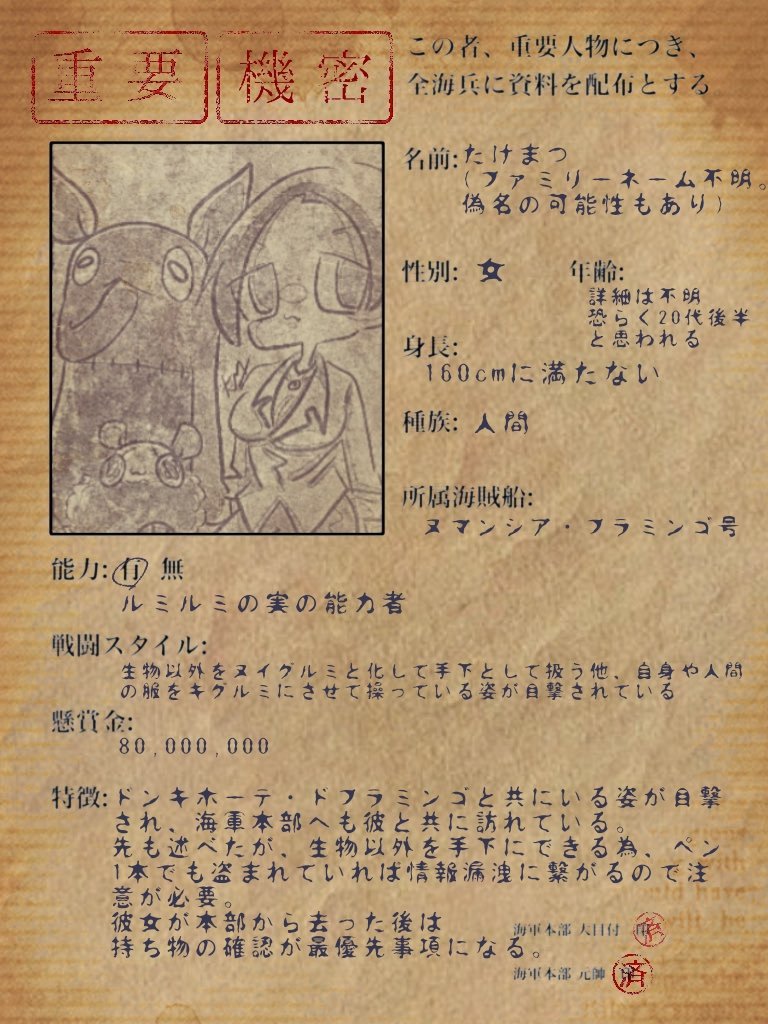 重要 機密
この者、重要人物につき、
全海兵に資料を配布とする
名前: たけまつ
(ファミリーネーム不明。
偽名の可能性もあり)
性別: 女 年齢:
詳細は不明
恐らく20代後半
と思われる
身長:
160cmに満たない
種族: 人間
所属海賊船:
ヌマンシア・フラミンゴ号
能力: 有 無
ルミルミの実の能力者
戦闘スタイル:
生物以外をヌイグルミと化して手下として扱う他、自身や人間
の服をキグルミにさせて操っている姿が目撃されている
懸賞金:
80,000,000
特徴: ドンキホーテ・ドフラミンゴと共にいる姿が目撃
され、海軍本部へも彼と共に訪れている。
先も述べたが、生物以外を手下にできる為、ペン
1本でも盗まれていれば情報漏洩に繋がるので注
意が必要。
彼女が本部から去った後は
持ち物の確認が最優先事項になる。
海軍本部 大目付 印
海軍本部 元帥 済